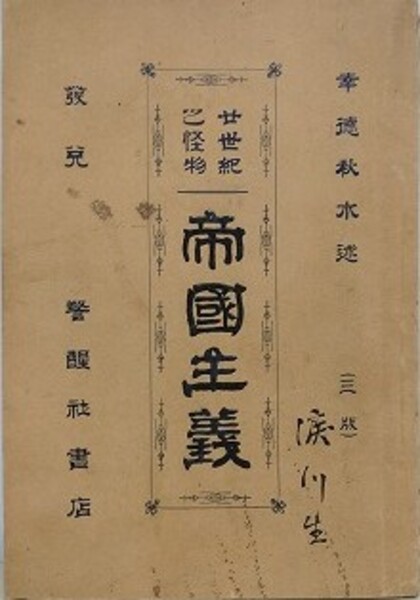 幸德秋水述
（三版）
廿世紀
之怪物
帝國主義
發兌
警醒社書店